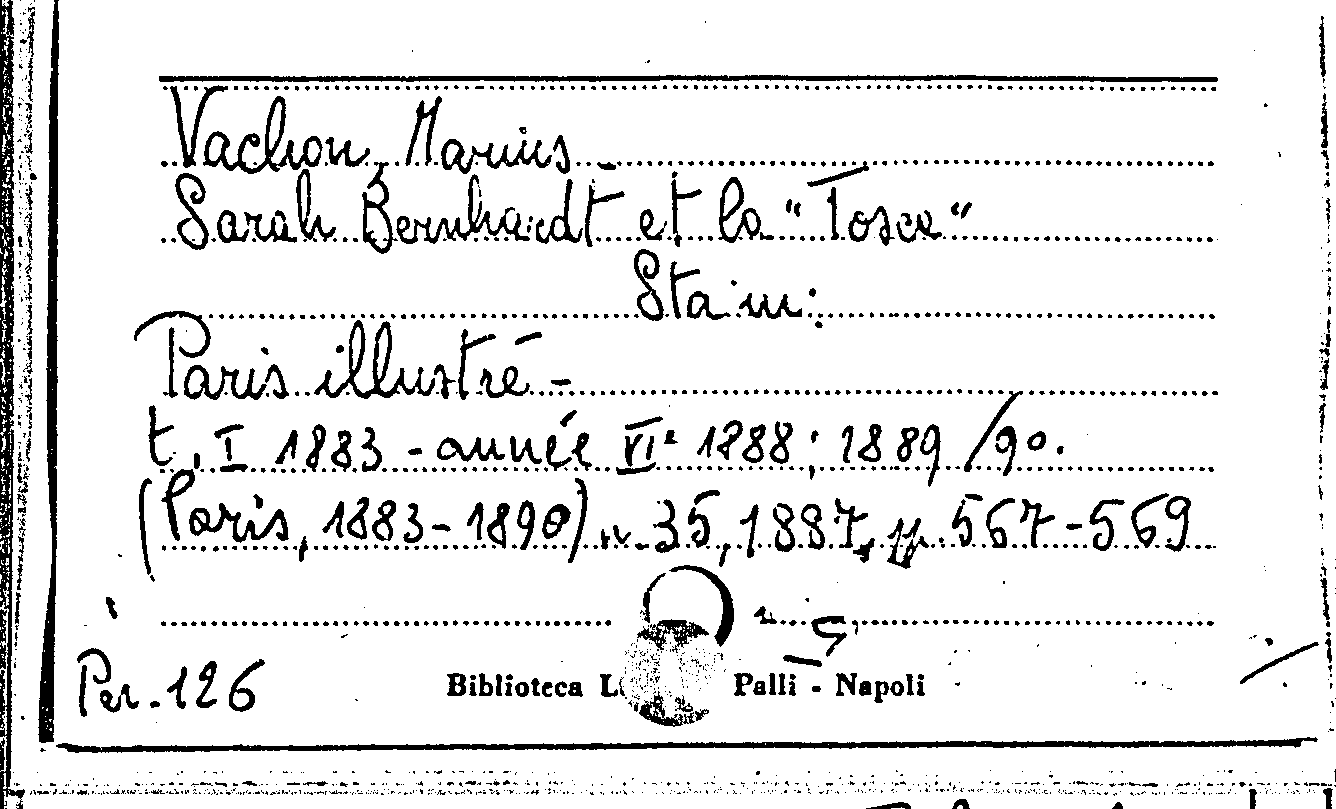 Vachon, Marius -
Sarah Bernhardt et la "Tosca"
Sta in:
Paris illustré -
t. I 1883 - année VIe 1888; 1889/90.
(Paris, 1883-1890) n. 35, 1887, pp. 567-569
Per. 126
Biblioteca L Palli - Napoli